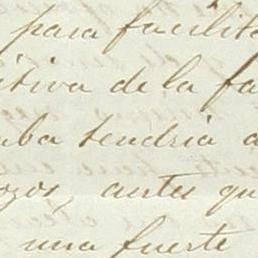 para facilita
itiva de la fa
uba tendria a
ozos, antes qu
una fuerte